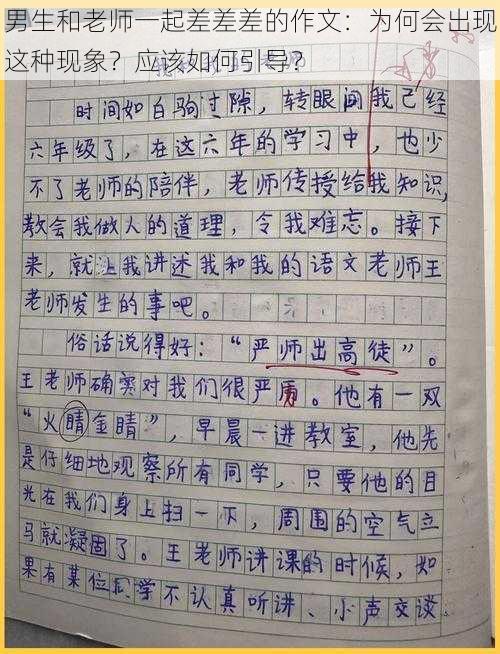 男生和老师一起差差差的作文：为何会出现
这种现象？应该如何引导？
时间如白驹过隙，转眼间我已经
六年级了，在这六年的学习中，也少
不了老师的陪伴，老师传授给我知识，
教会我做人的道理，令我难忘。接下
来，就让我讲述我和我的语文老师王
老师发生的事吧。
俗话说得好：“严师出高徒”。
王老师确实对我们很严厉。他有一双
“火睛金睛”，早晨一进教室，他先
是仔细地观察所有同学，只要他的目
光在我们身上扫一下，周围的空气立
马就凝固了。王老师讲课的时候，如
果有某位同学不认真听讲、小声交谈